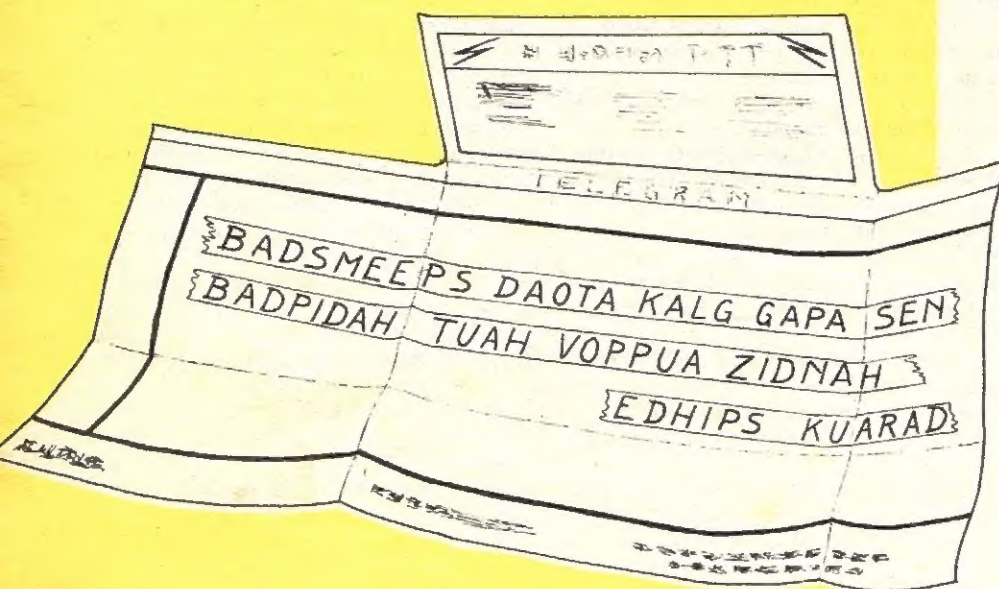 TELEGRAM
BADSMEEPS DAOTA KALG GAPA SEN
BADPIDAH TUAH VOPPUA ZIDNAH
EDHIPS KUARAD